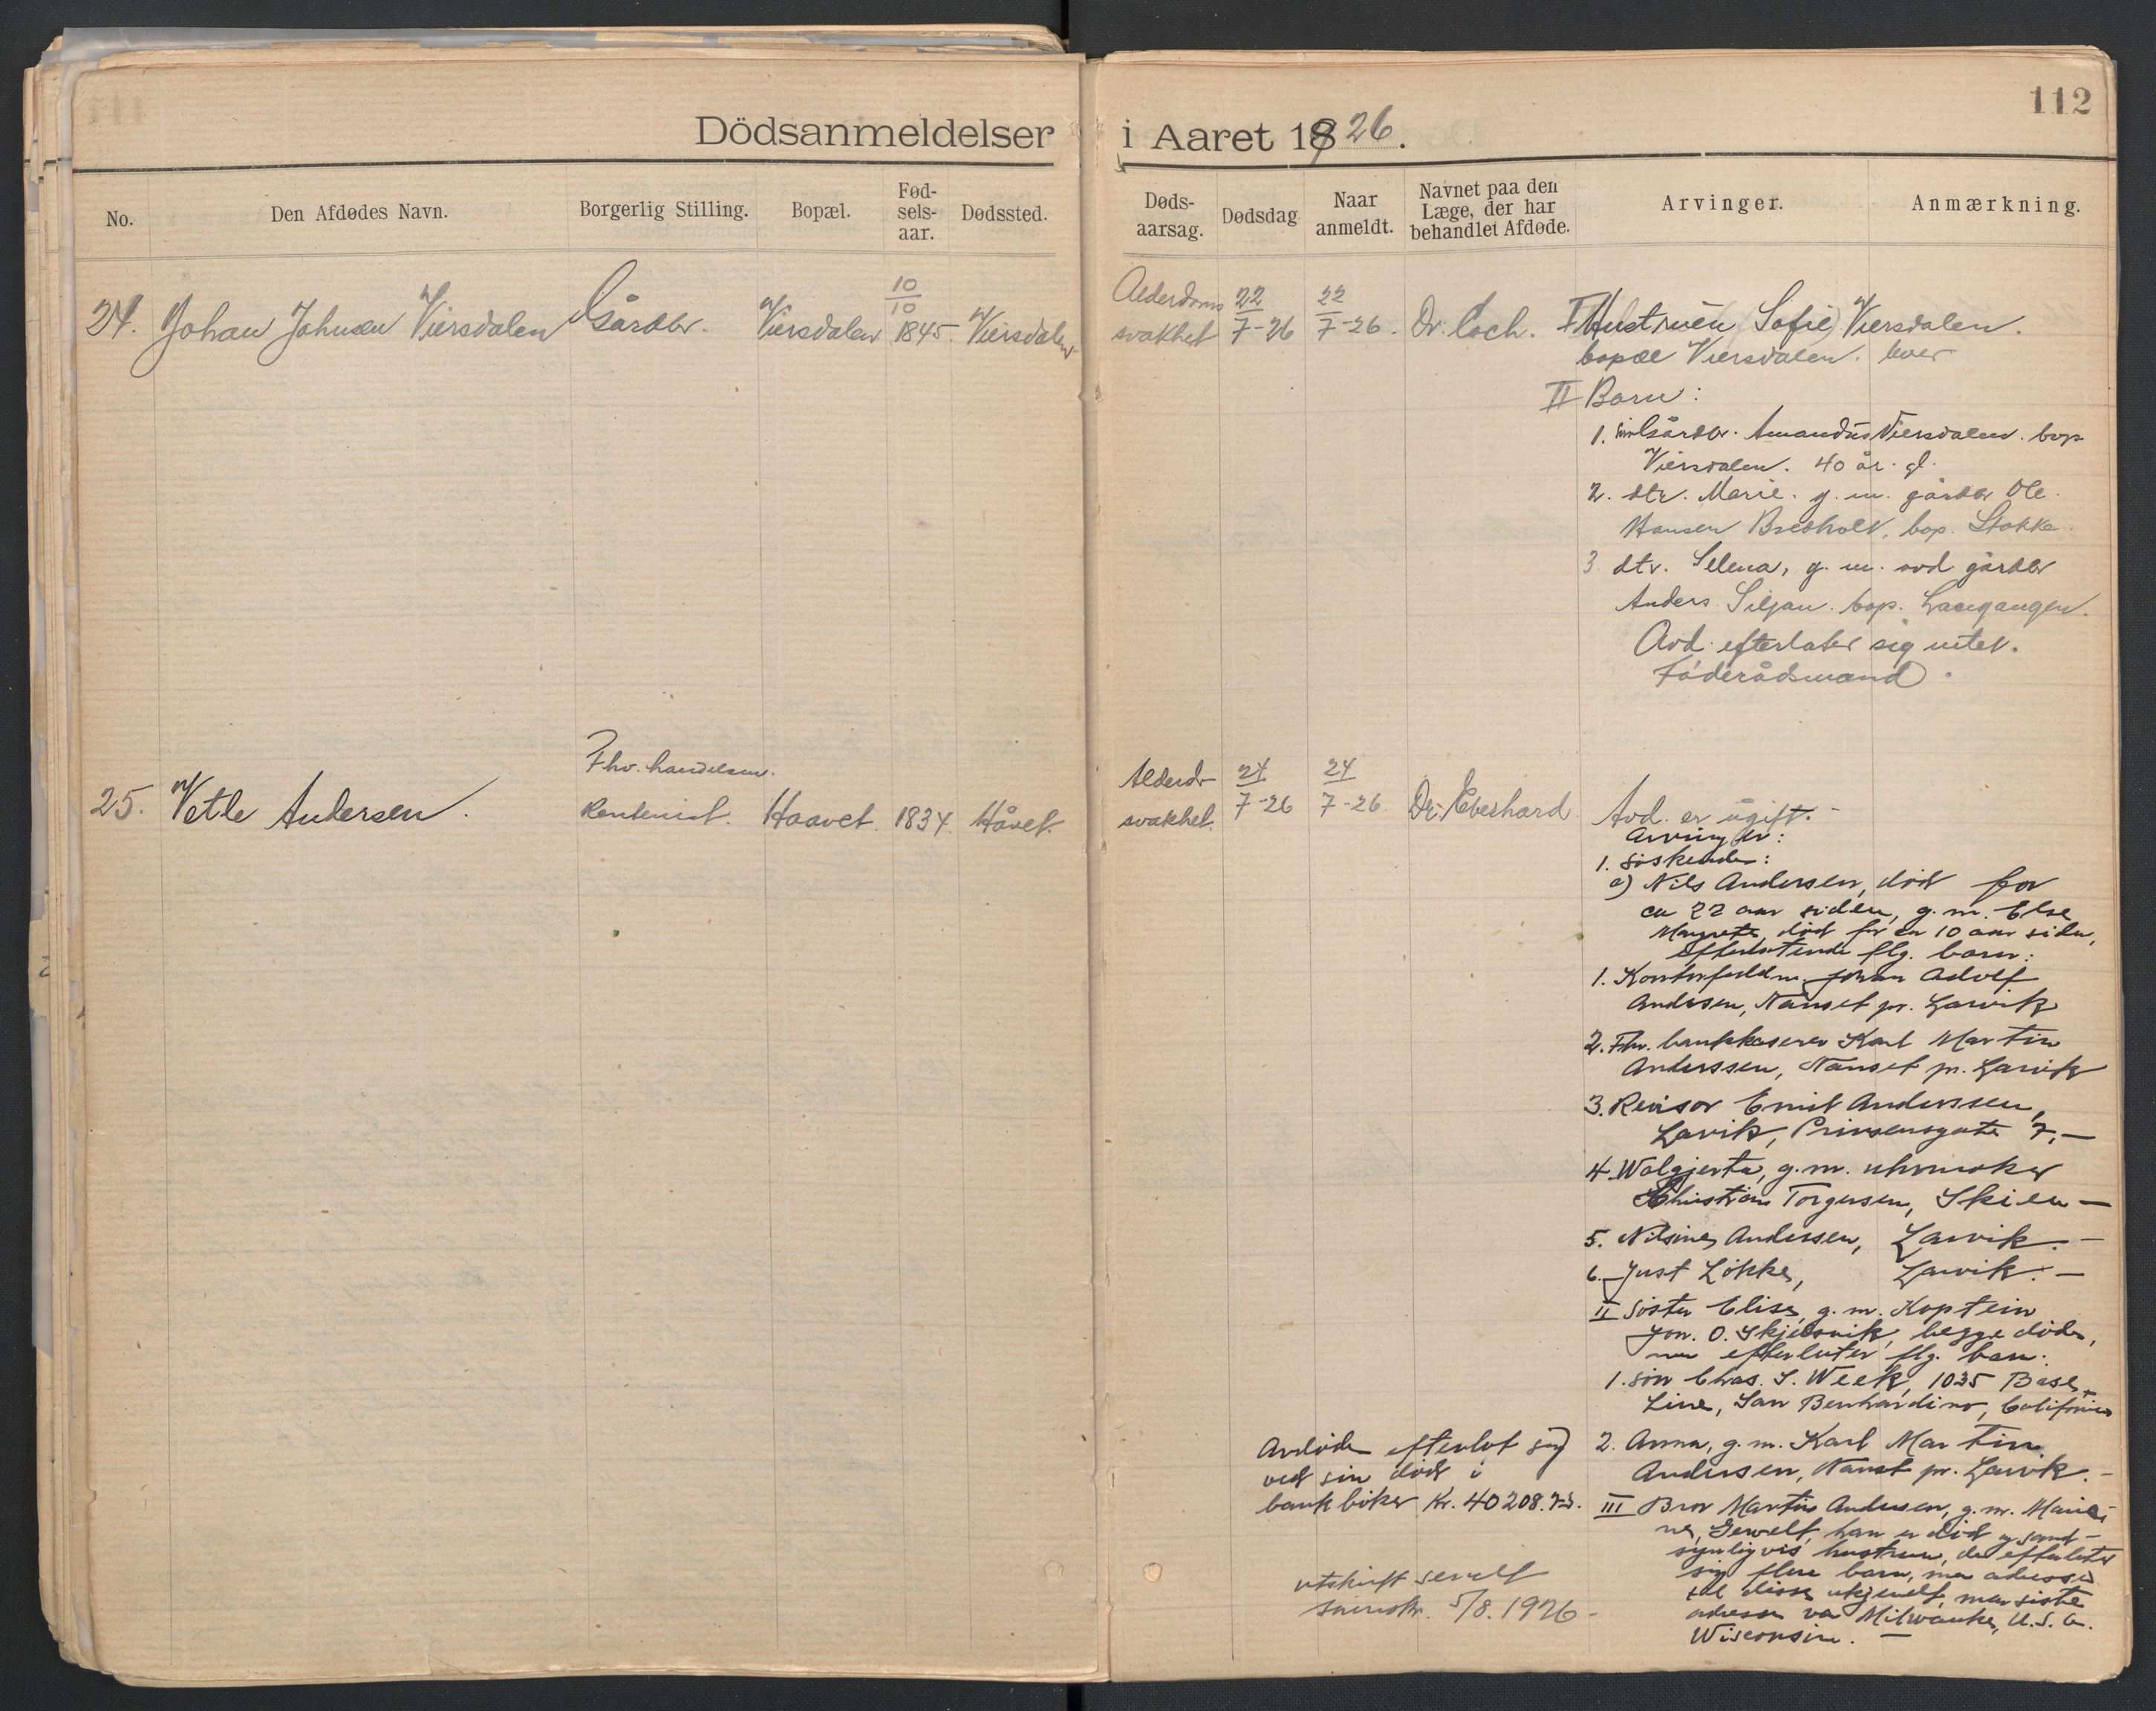 112
Dödsanmeldelser i Aaret 1926.
No. Den Afdødes Navn. Borgerlig Stilling. Bopæl. Fød-sels-aar. Dødssted. Døds-aarsag. Dødsdag Naar anmeldt. Navnet paa den Læge, der har behandlet Afdøde. Arvinger. Anmærkning.
24. Johan Johnsen Viersdalen Gårdbr. Viersdalen 10/10 1845 Viersdalen
Alderdoms
svakhet 22/7-26 22/7-26. Dr. Coch.
I Hustruen Sofie Viersdalen.
bopæl Viersdalen.
II Barn:
1. søn Gårdbr. Amandus Viersdalen. bop
Viersdalen. 40 år. gl.
2. dtr. Marie. g. m. gårdbr Ole
Hansen Bredholt, bop. Stokke.
3. dtr. Selena, g. m. gårdbr
Anders Siljan. bop. Langangen.
Avd. efterlater sig intet.
Föderådsmand.
25. Vetle Andersen.
Fhv. handelsm.
Rentenist. Haavet. 1834. Håvet.
Alderds-
svakhet. 24/7-26 24/7-26. Dr. Eberhard
Avd. er ugift.-
Arvinger:
1. Söskende:
a) Nils Andersen, död for
ca 22 aar siden, g. m. Else
Margrete, död for ca 10 aar siden,
efterlatende flg. barn:
1. Kontorfuldm. Johan Adolf
Andersen, Nanset pr. Larvik
2. Fhv. bankkaserer Karl Martin
Anderssen, Nanset pr. Larvik
3. Revisor Emil Anderssen,
Larvik, Prinsensgate 7.-
4. Wolgjerta, g. m. uhrmaker
Christian Torgersen, Skien -
5. Nilsine Andersen, Larvik. -
6. Just Lökke, Larvik. -
II Söster Elise, g. m. Kaptein
Jon. O. Skjelsvik, begge döde,
men efterlater flg. barn:
1. sön Chas. S. Week, 1035 Base
Line, San Bernhardino, California
2. Anna, g. m. Karl Martin
Andersen, Nanset pr. Larvik. -
III Bror Martin Andersen, g. m.
han er död og sand-
synligvis hustruen, de efterlater
sig flere barn, men adressen
til disse ukjendt, men siste
adresse var Milwauke, U.S.A.
Wisconsin. -
Avdöde efterlot sig
ved sin död i
bankböker Kr. 40208.
utskrift sendt
5/8. 1926 -